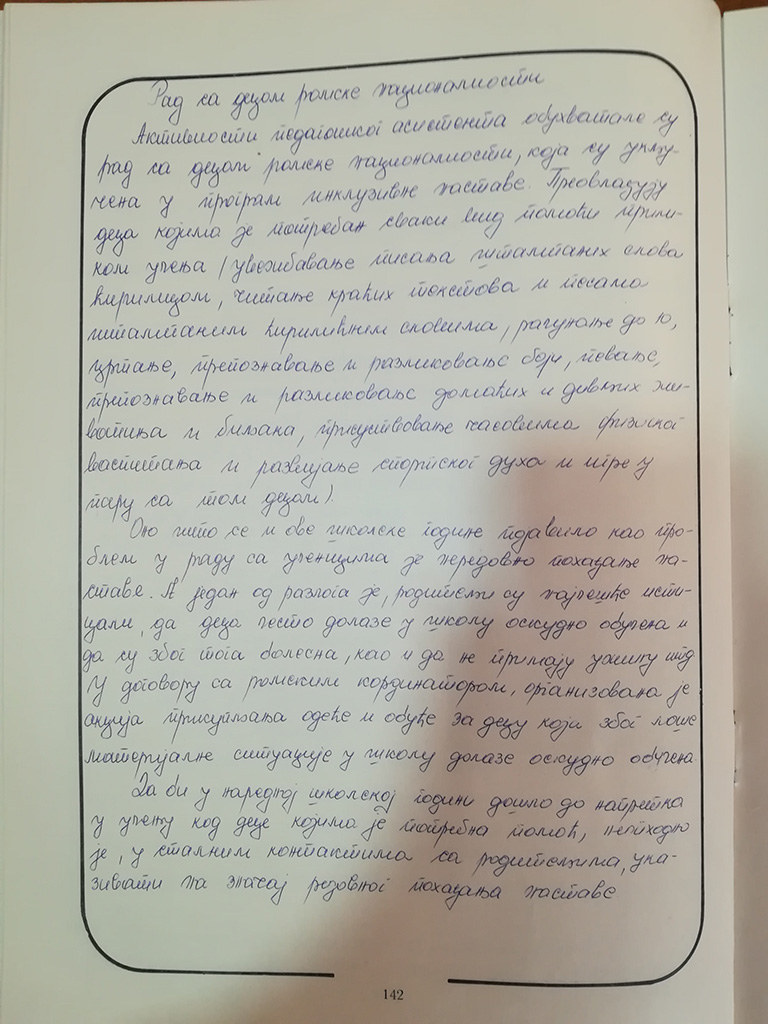 Рад са децом ромске националности
Активности педагошког асистента обухватале су
рад са децом ромске националности, која су укљу-
чена у програм инклузивне наставе. Преовладују
деца којима је потребан сваки вид помоћи прили-
ком учења / увежбавање писања штампаних слова
ћирилицом, читање краћих текстова и песама
штампаним ћириличним словима, рачунање до 10,
цртање, препознавање и разликовање боја, певање,
препознавање и разликовање домаћих и дивљих жи-
вотиња и биљака, присуствовање часовима физичког
васпитања и развијање спортског духа и игре у
пару са том децом).
Оно што се и ове школске године појавило као про-
блем у раду са ученицима је нередовно похађање на-
ставе. А један од разлога је, родитељи су најчешће исти-
цали, да деца често долазе у школу оскудно обучена и
да су због тога болесна, као и да не примају ужину итд
У договору са ромским кординатором, организована је
акција прикупљања одеће и обуће за децу који због лоше
материјалне ситуације у школу долазе оскудно обучена
Да би у наредној школској години дошло до напретка
у учењу код деце којима је потребна помоћ, неопходно
је, у сталним контактима са родитељима, ука-
зивати на значај редовног похађања наставе
142